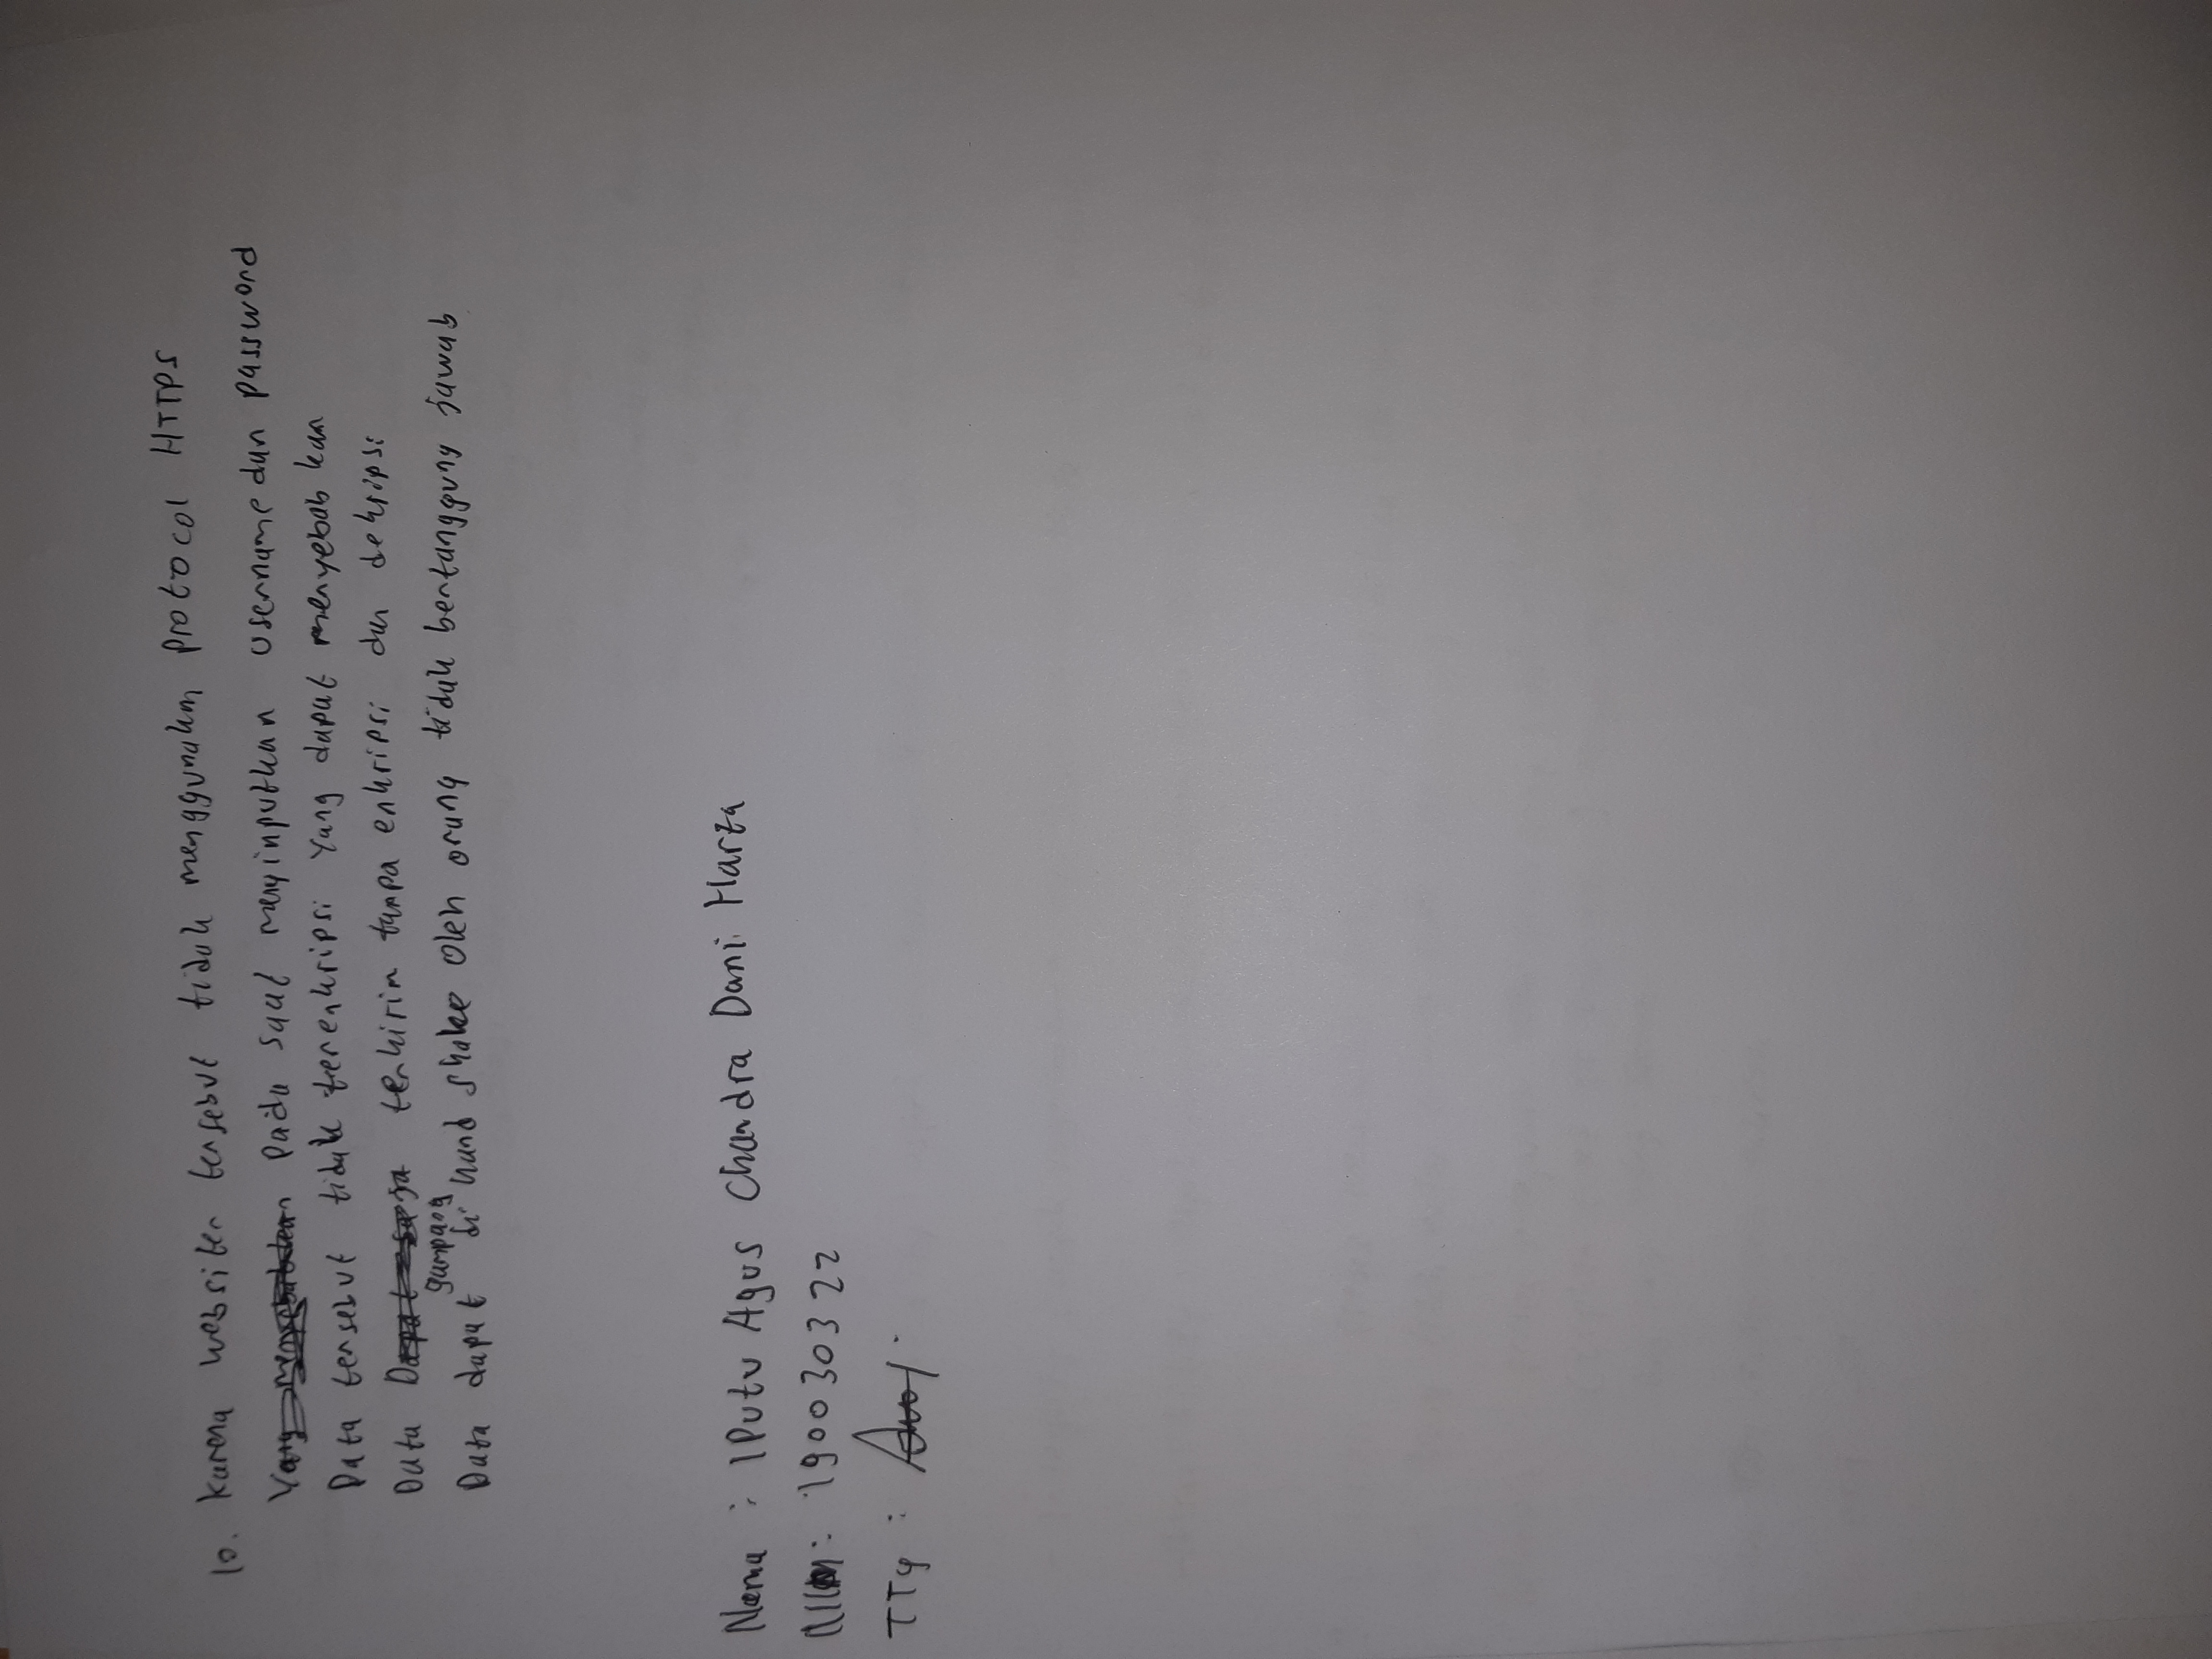 10. Karena websiter tersebut tidak menggunakan protocol HTTPS
Yang menyebabkan Pada saat menyinputkan username dan password
Data tersebut tidak terenkripsi Yang dapat menyebabkan
Data Dapat saja terkirim tanpa enkripsi dan dekripsi
gampang
Data dapat di hand shake oleh orang tidak bertanggung jawab
Nama : I Putu Agus Chandra Dani Harta
NIM : 190030322
TTg :